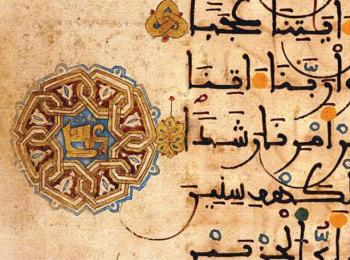 ايتنا عجبا
ربنا اتنا
امرنا رشدا
الكهف سنين
اي الحزبين